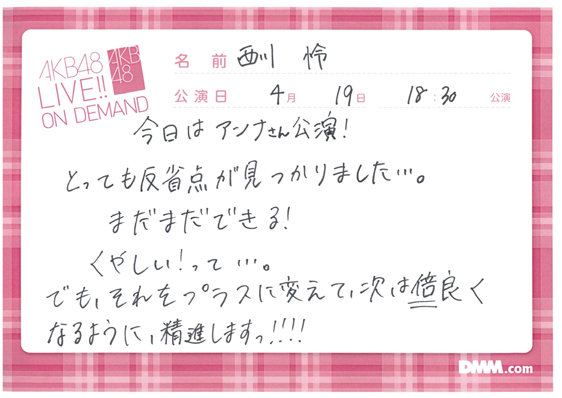 AKB48
LIVE!!
ON DEMAND
AKB
48
名 前 西川 怜
公演日 4月 19日 18:30 公演
今日はアンナさん公演!
とっても反省点が見つかりました…。
まだまだできる!
くやしい!って…。
でも、それをプラスに変えて、次は倍良く
なるように、精進しますっ!!!!
DMM.com